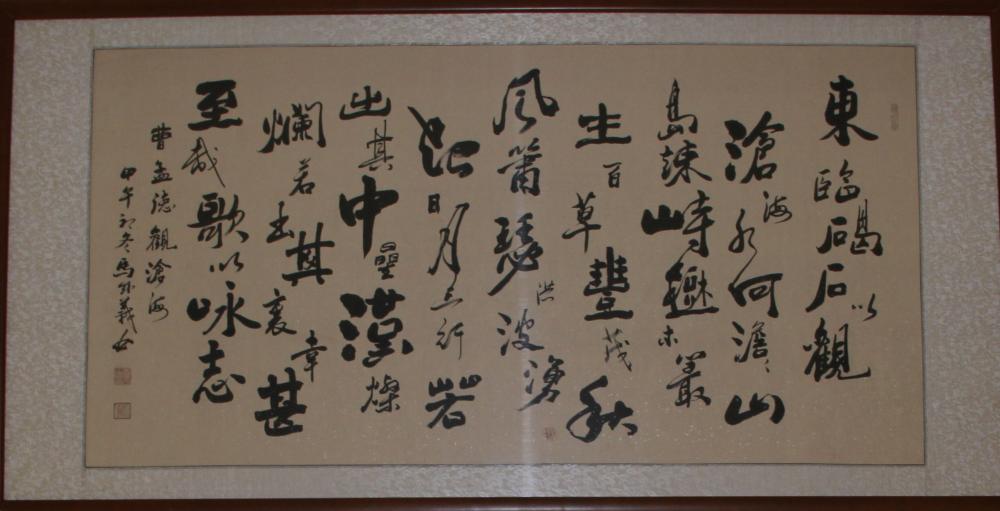 東臨碣石以觀
滄海水何澹澹山
島竦峙樹木叢
生百草豐茂秋
風簫瑟洪波湧
起日月之行若
出其中星漢燦
爛若出其裏幸甚
至哉歌以咏志
曹孟德觀滄海
甲午初冬馬